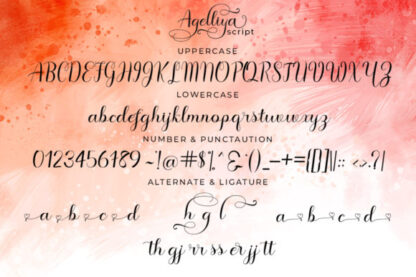 Agelliya
script
UPPERCASE
ABCDEFGHIJKLMNOPQRSTUVWXYZ
LOWERCASE
abcdefghijklmnopqrstuvwxyz
NUMBER & PUNCTAUTION
0123456189 ~!@#$%^&*()_-+={[}]|:: <,>.?/
ALTERNATE & LIGATURE
a b c d h g l a b c d
th gj rr ss er jj tt